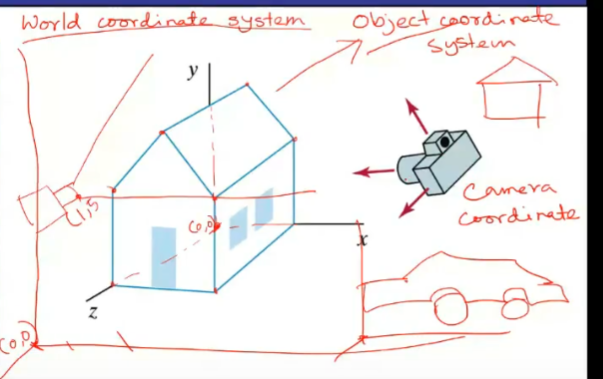 World coordinate system
Object coordinate
system
y
(1,5
(0,0)
Camera
coordinate
x
z
(0,0)